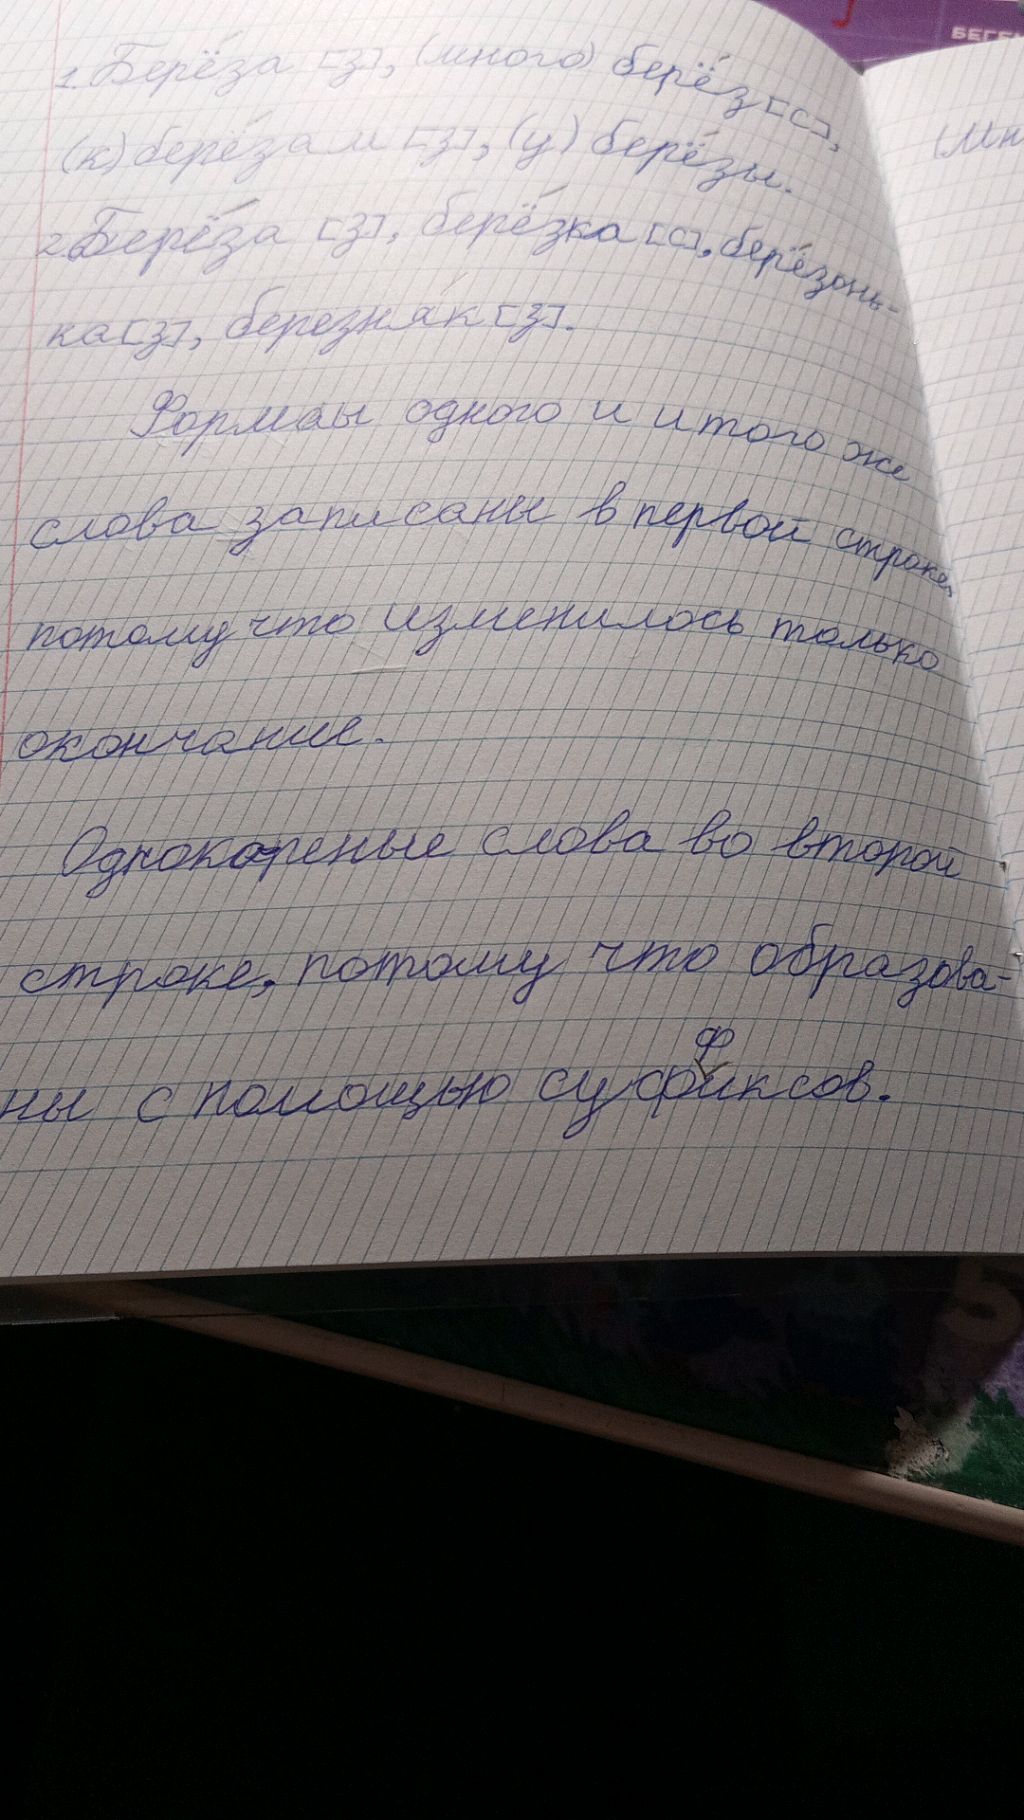 БЕГЕ
1. Берёза [з], (много) берёз [с],
(Мн
(к) берёзам [з], (у) берёзы.
2. Берёза [з], берёзка [с], берёзонь-
ка [з], березняк [з].
Формаы одного и итого же
слова записаны в первой строке,
потому что изменилось только
окончание.
Однокореные слова во второй
строке, потому что образова-
ны с помощью суфиксов.
ф